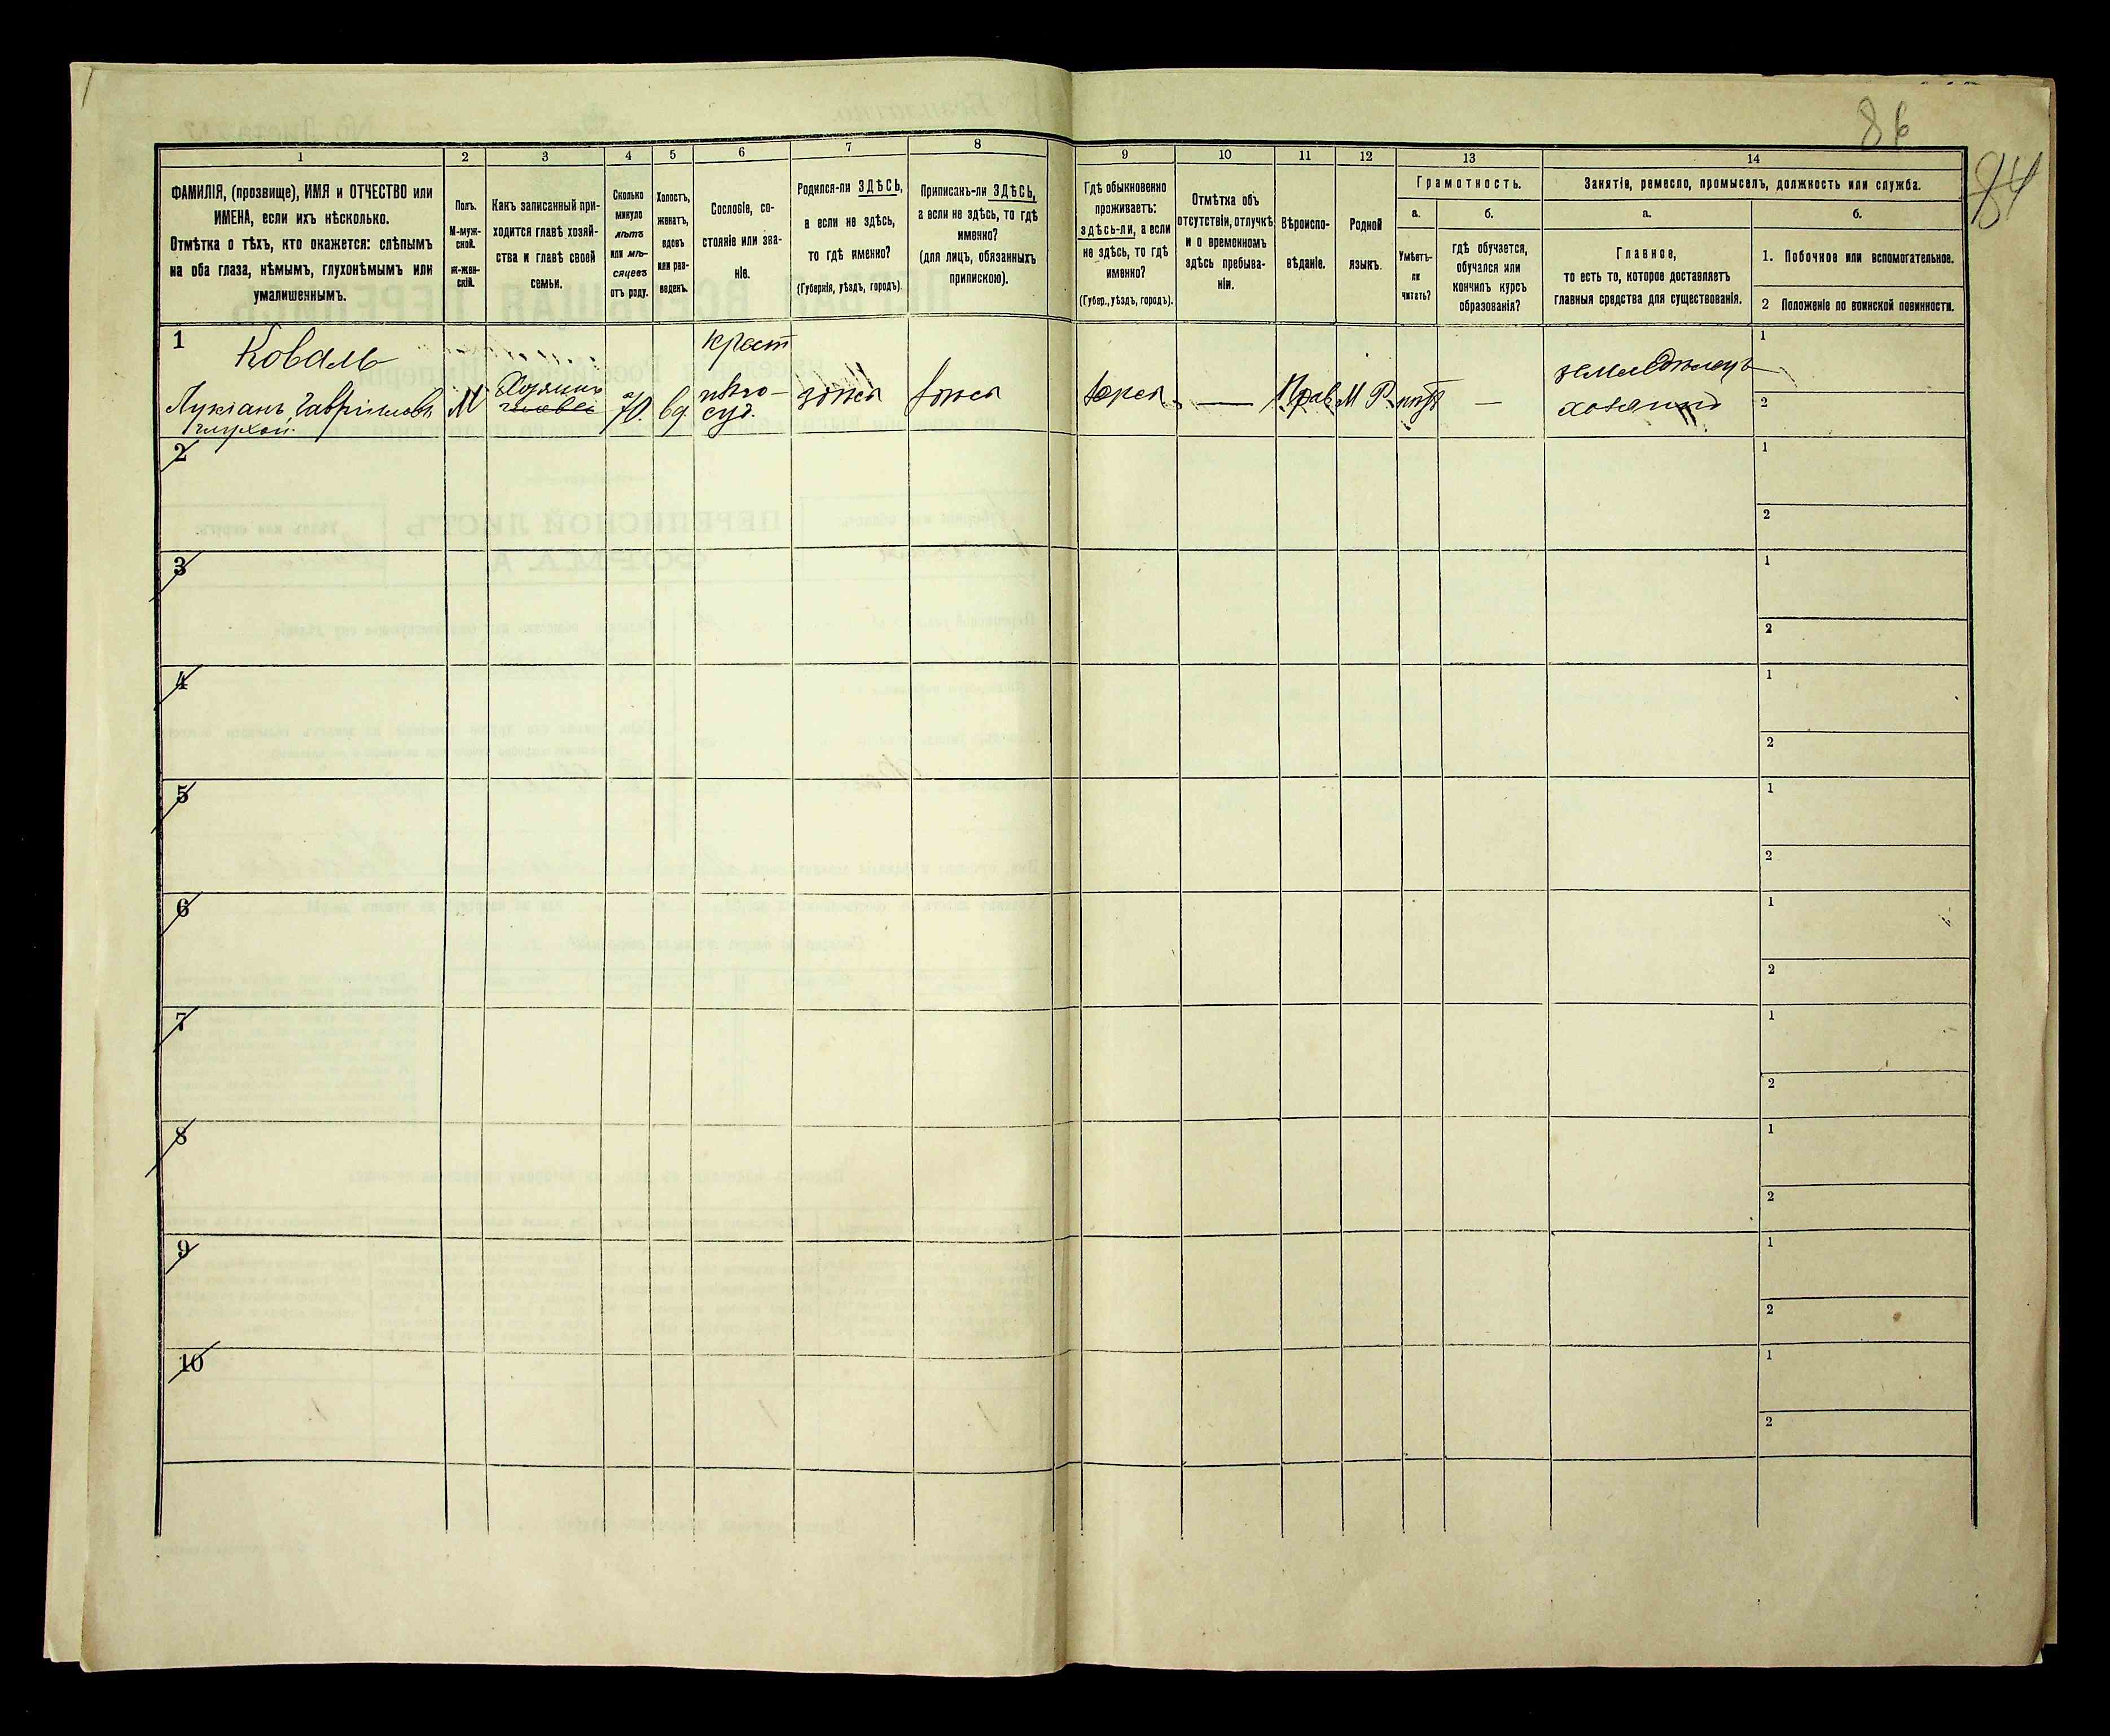 86
84
1 2 3 4 5 6 7 8 9 10 11 12 13 14
ФАМИЛІЯ, (прозвище), ИМЯ и ОТЧЕСТВО или
ИМЕНА, если ихъ нѣсколько.
Отмѣтка о тѣхъ, кто окажется: слѣпымъ
на оба глаза, нѣмымъ, глухонѣмымъ или
умалишеннымъ.
Полъ.
М-муж-
ской.
ж-жен-
скій.
Какъ записанный при-
ходится главѣ хозяй-
ства и главѣ своей
семьи.
Сколько
минуло
лѣтъ
или мѣ-
сяцевъ
отъ роду.
Холостъ,
женатъ,
вдовъ
или раз-
веденъ.
Сословіе, со-
стояніе или зва-
ніе.
Родился-ли ЗДѢСЬ,
а если не здѣсь,
то гдѣ именно?
(Губернія, уѣздъ, городъ).
Приписанъ-ли ЗДѢСЬ,
а если не здѣсь, то гдѣ
именно?
(для лицъ, обязанныхъ
припискою).
Гдѣ обыкновенно
проживаетъ:
здѣсь-ли, а если
не здѣсь, то гдѣ
именно?
(Губер., уѣздъ, городъ).
Отмѣтка объ
отсутствіи, отлучкѣ
и о временномъ
здѣсь пребыва-
ніи.
Вѣроиспо-
вѣданіе.
Родной
языкъ.
Грамотность.
а.
Умѣетъ-
ли
читать?
б.
гдѣ обучается,
обучался или
кончилъ курсъ
образованія?
Занятіе, ремесло, промыселъ, должность или служба.
а.
Главное,
то есть то, которое доставляетъ
главныя средства для существованія.
б.
1. Побочное или вспомогательное.
2 Положеніе по воинской повинности.
1
Коваль
Лукіанъ Гавріиловъ
глухой.
М
Хозяинъ
70.
вд
крест
здѣсь
здѣсь
здѣсь
—
Прав
М Р
нѣтъ
—
земледѣлецъ
хозяинъ
1
2
2
1
2
3
1
2
4
1
2
5
1
2
6
1
2
7
1
2
8
1
2
9
1
2
10
1
2